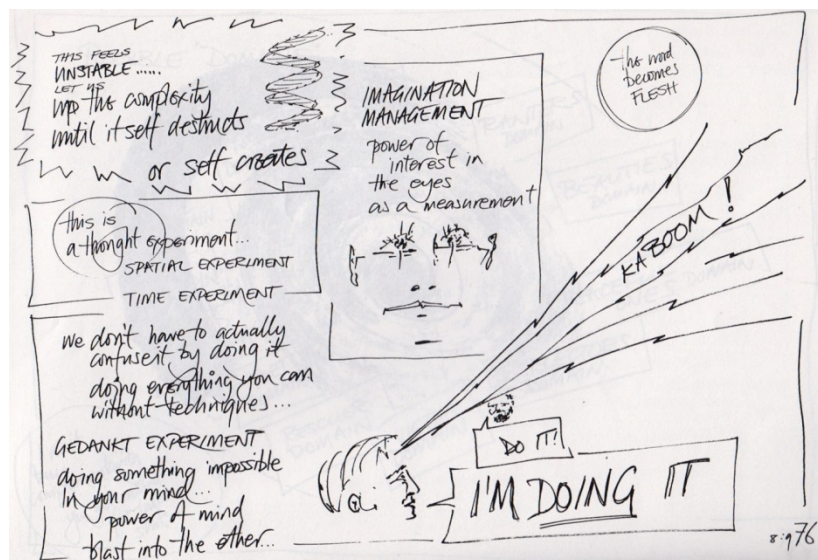 THIS FEELS
UNSTABLE......
LET US
up the complexity
until it self destructs
or self creates
this is
a thought experiment...
SPATIAL EXPERIMENT
TIME EXPERIMENT
we don't have to actually
confuse it by doing it
doing everything you can
without techniques...
GEDANKT EXPERIMENT
doing something impossible
in your mind...
power of mind
blast into the other...
IMAGINATION
MANAGEMENT
power of
interest in
the eyes
as a measurement
the word
becomes
FLESH
KABOOM!
DO IT!
I'M DOING IT
BEAUTIES
DOMAIN
DOMAIN
76